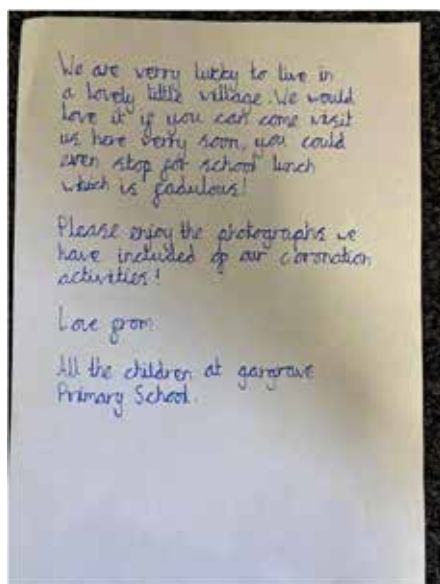 We are verry lucky to live in
a lovely little village. We would
love it if you can come visit
us here verry soon, you could
even stop for school lunch
which is fabulous!
Please enjoy the photographs we
have included of our coronation
activities!
Love from
All the children at gargrave
Primary School.